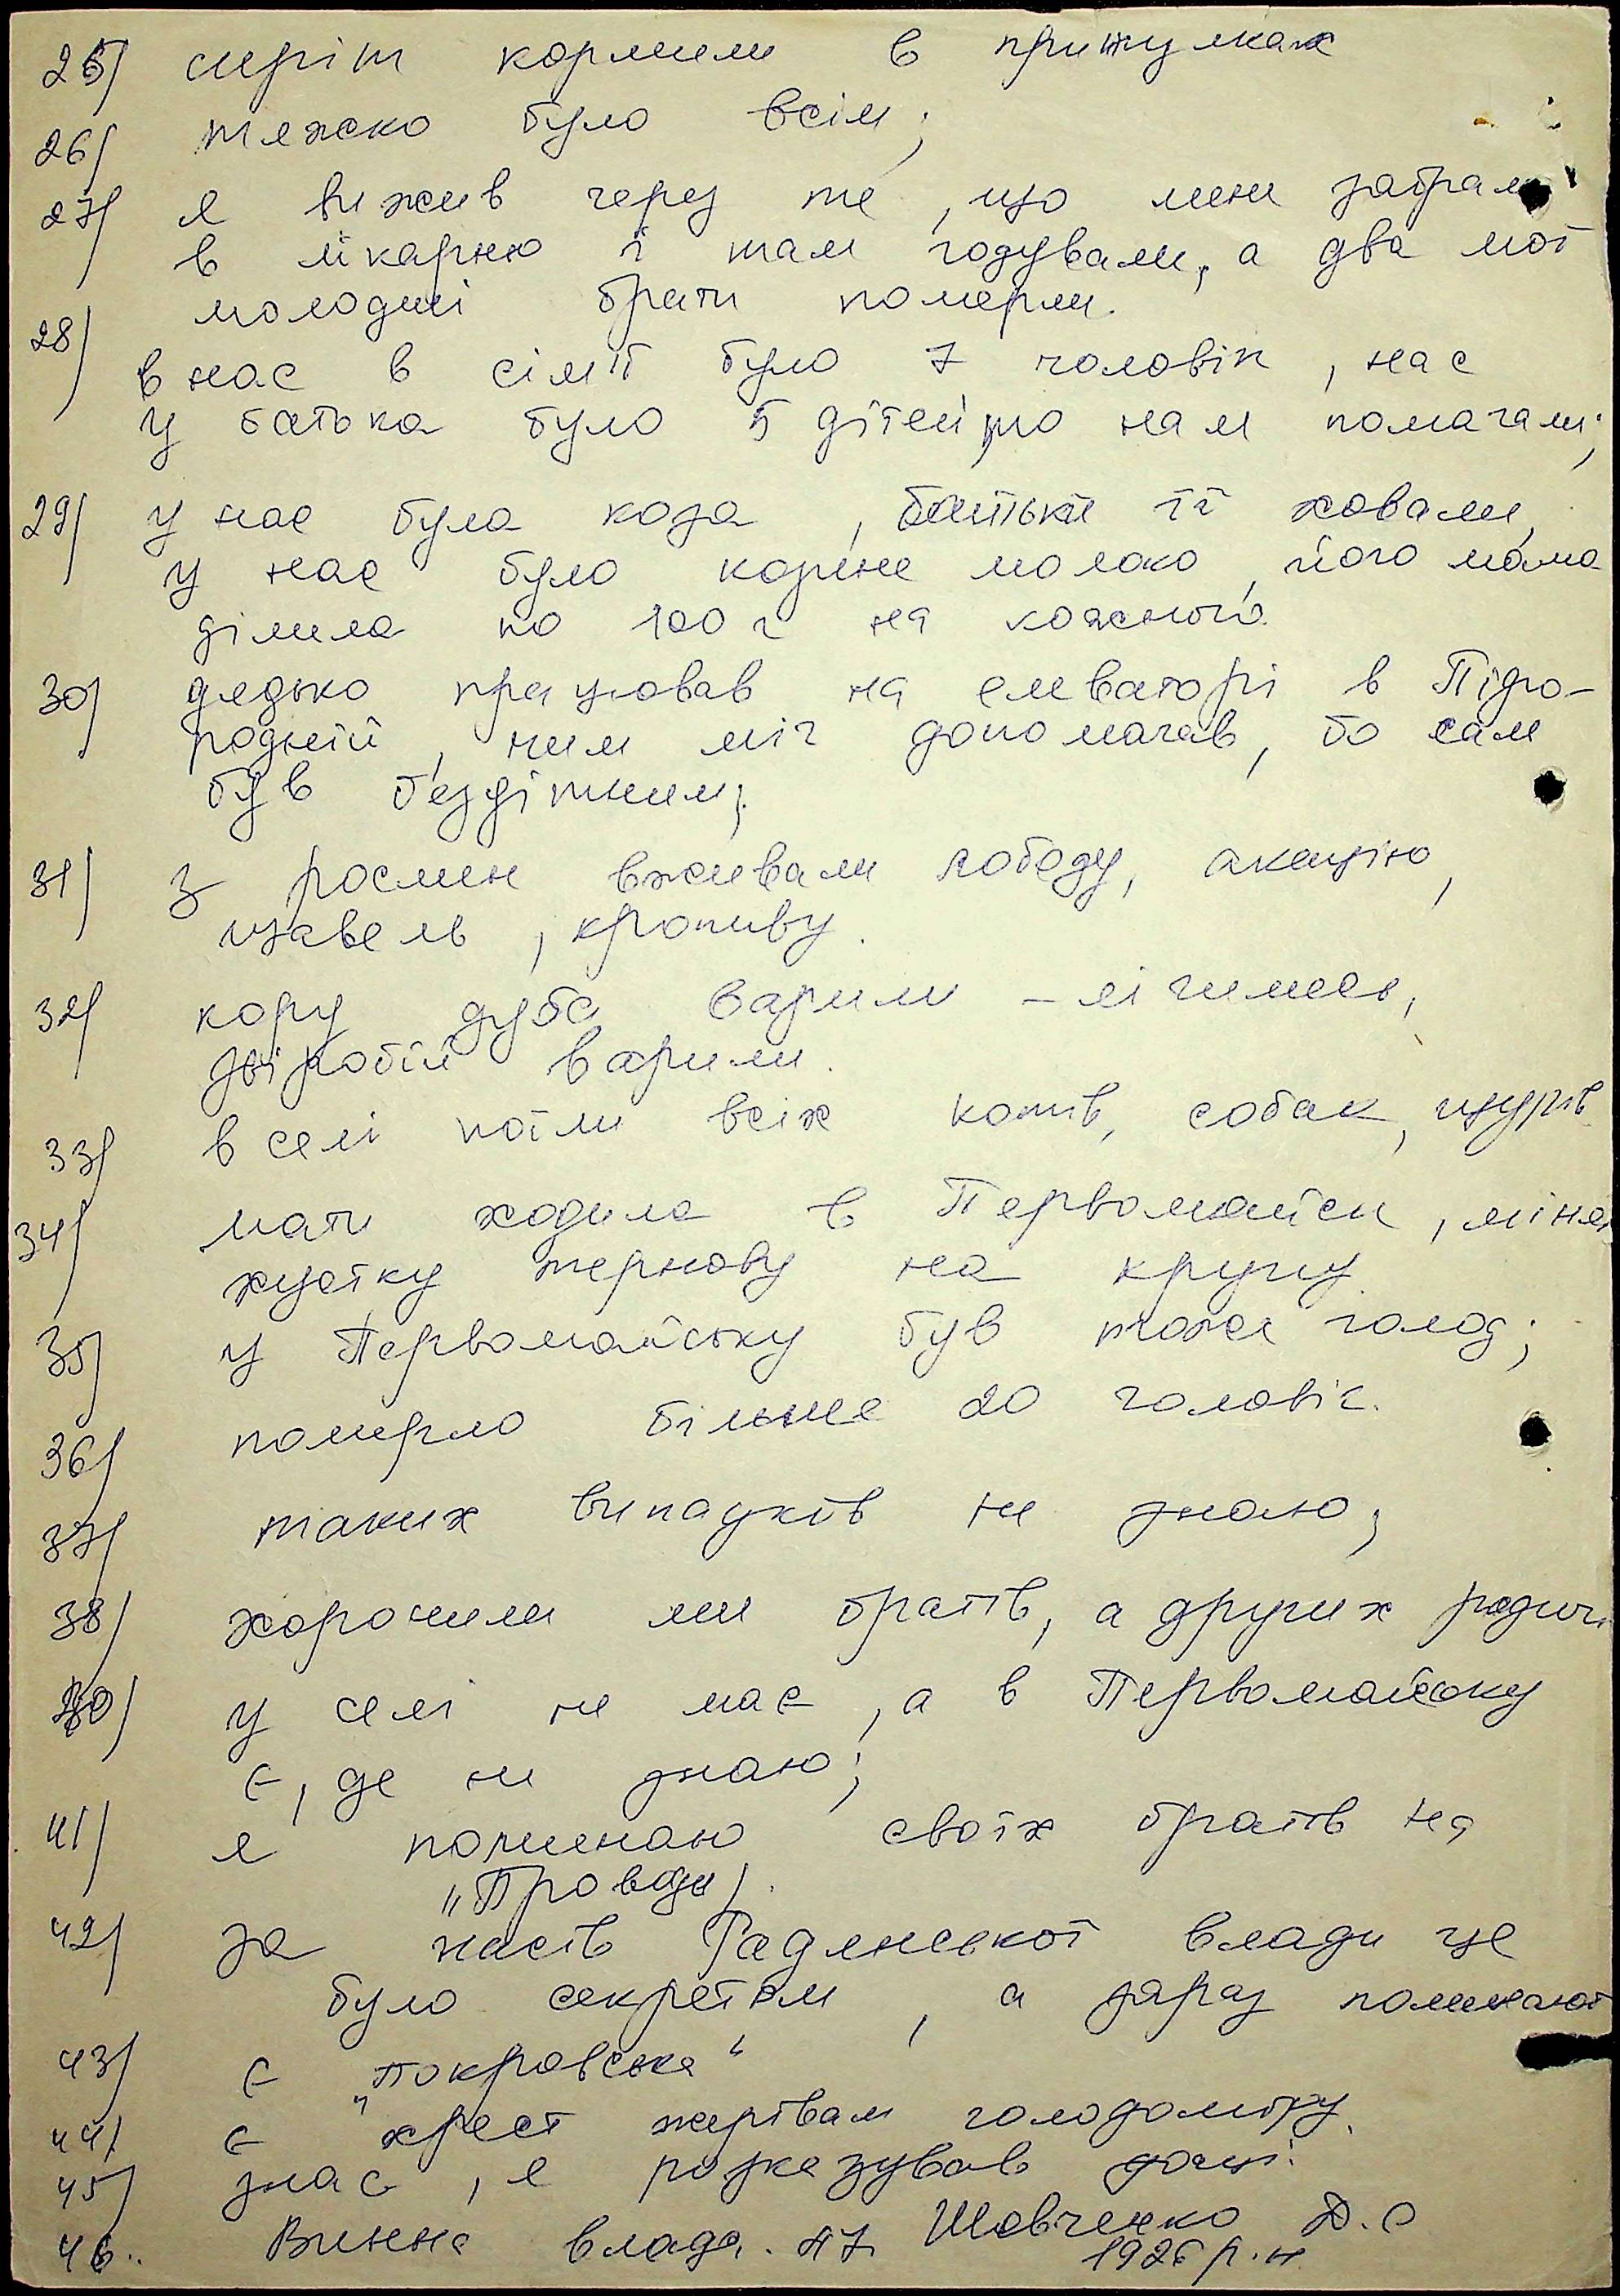 25) сиріт кормили в притулках
26) тяжко було всім;
27) я вижив через те, що мене забрали
в лікарню і там годували, а два мої
молодші брати померли.
28) в нас в сім'ї було 7 чоловік, нас
у батька було 5 дітей, хто нам помагали;
29) у нас була коза, батьки її ховали,
у нас було козине молоко, його мама
ділила по 100 г на кожного.
30) дядько працював на елеваторі в Підго-
родній, чим міг допомагав, бо сам
був бездітним;
31) З рослин вживали лободу, акацію,
щавель, кропиву.
32) кору дуба варили - лічились,
звіробій варили.
33) в селі поїли всіх котів, собак, щурів
34) мати ходила в Первомайськ, міняла
хустку тернову на крупу
35) у Первомайську був тоже голод;
36) померло більше 20 чоловік.
37) таких випадків не знаю;
38) хоронили ми братів, а других родичі
40) у селі не має, а в Первомайську
є, де не знаю;
41) я поминаю своїх братів на
"Проводи".
42) за часів Радянської влади це
було секретом, а зараз поминають
43) є "Покровська"
44) є хрест жертвам голодомору.
45) знає, я розказував дочці.
46. Винна влада. Шевченко Д.С
1926 р.н